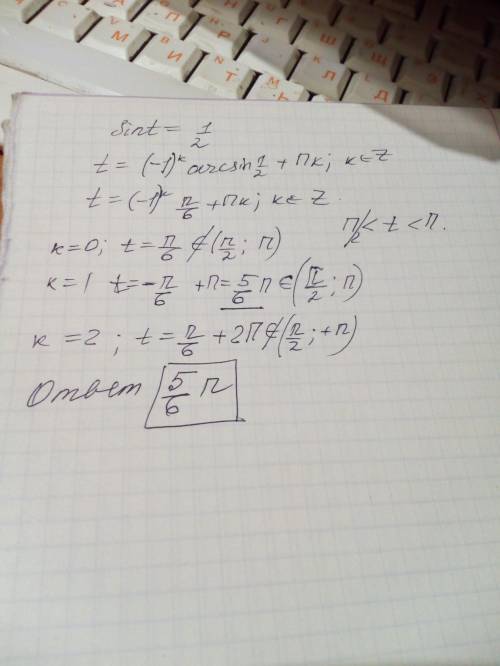 sin t = 1/2
t = (-1)^k arcsin 1/2 + πk; k ∈ Z
t = (-1)^k π/6 + πk; k ∈ Z.
π/2 < t < π.
k = 0; t = π/6 ∉ (π/2; π)
k = 1 t = -π/6 + π = 5/6 π ∈ (π/2; π)
k = 2; t = π/6 + 2π ∉ (π/2; +π)
Ответ 5/6 π